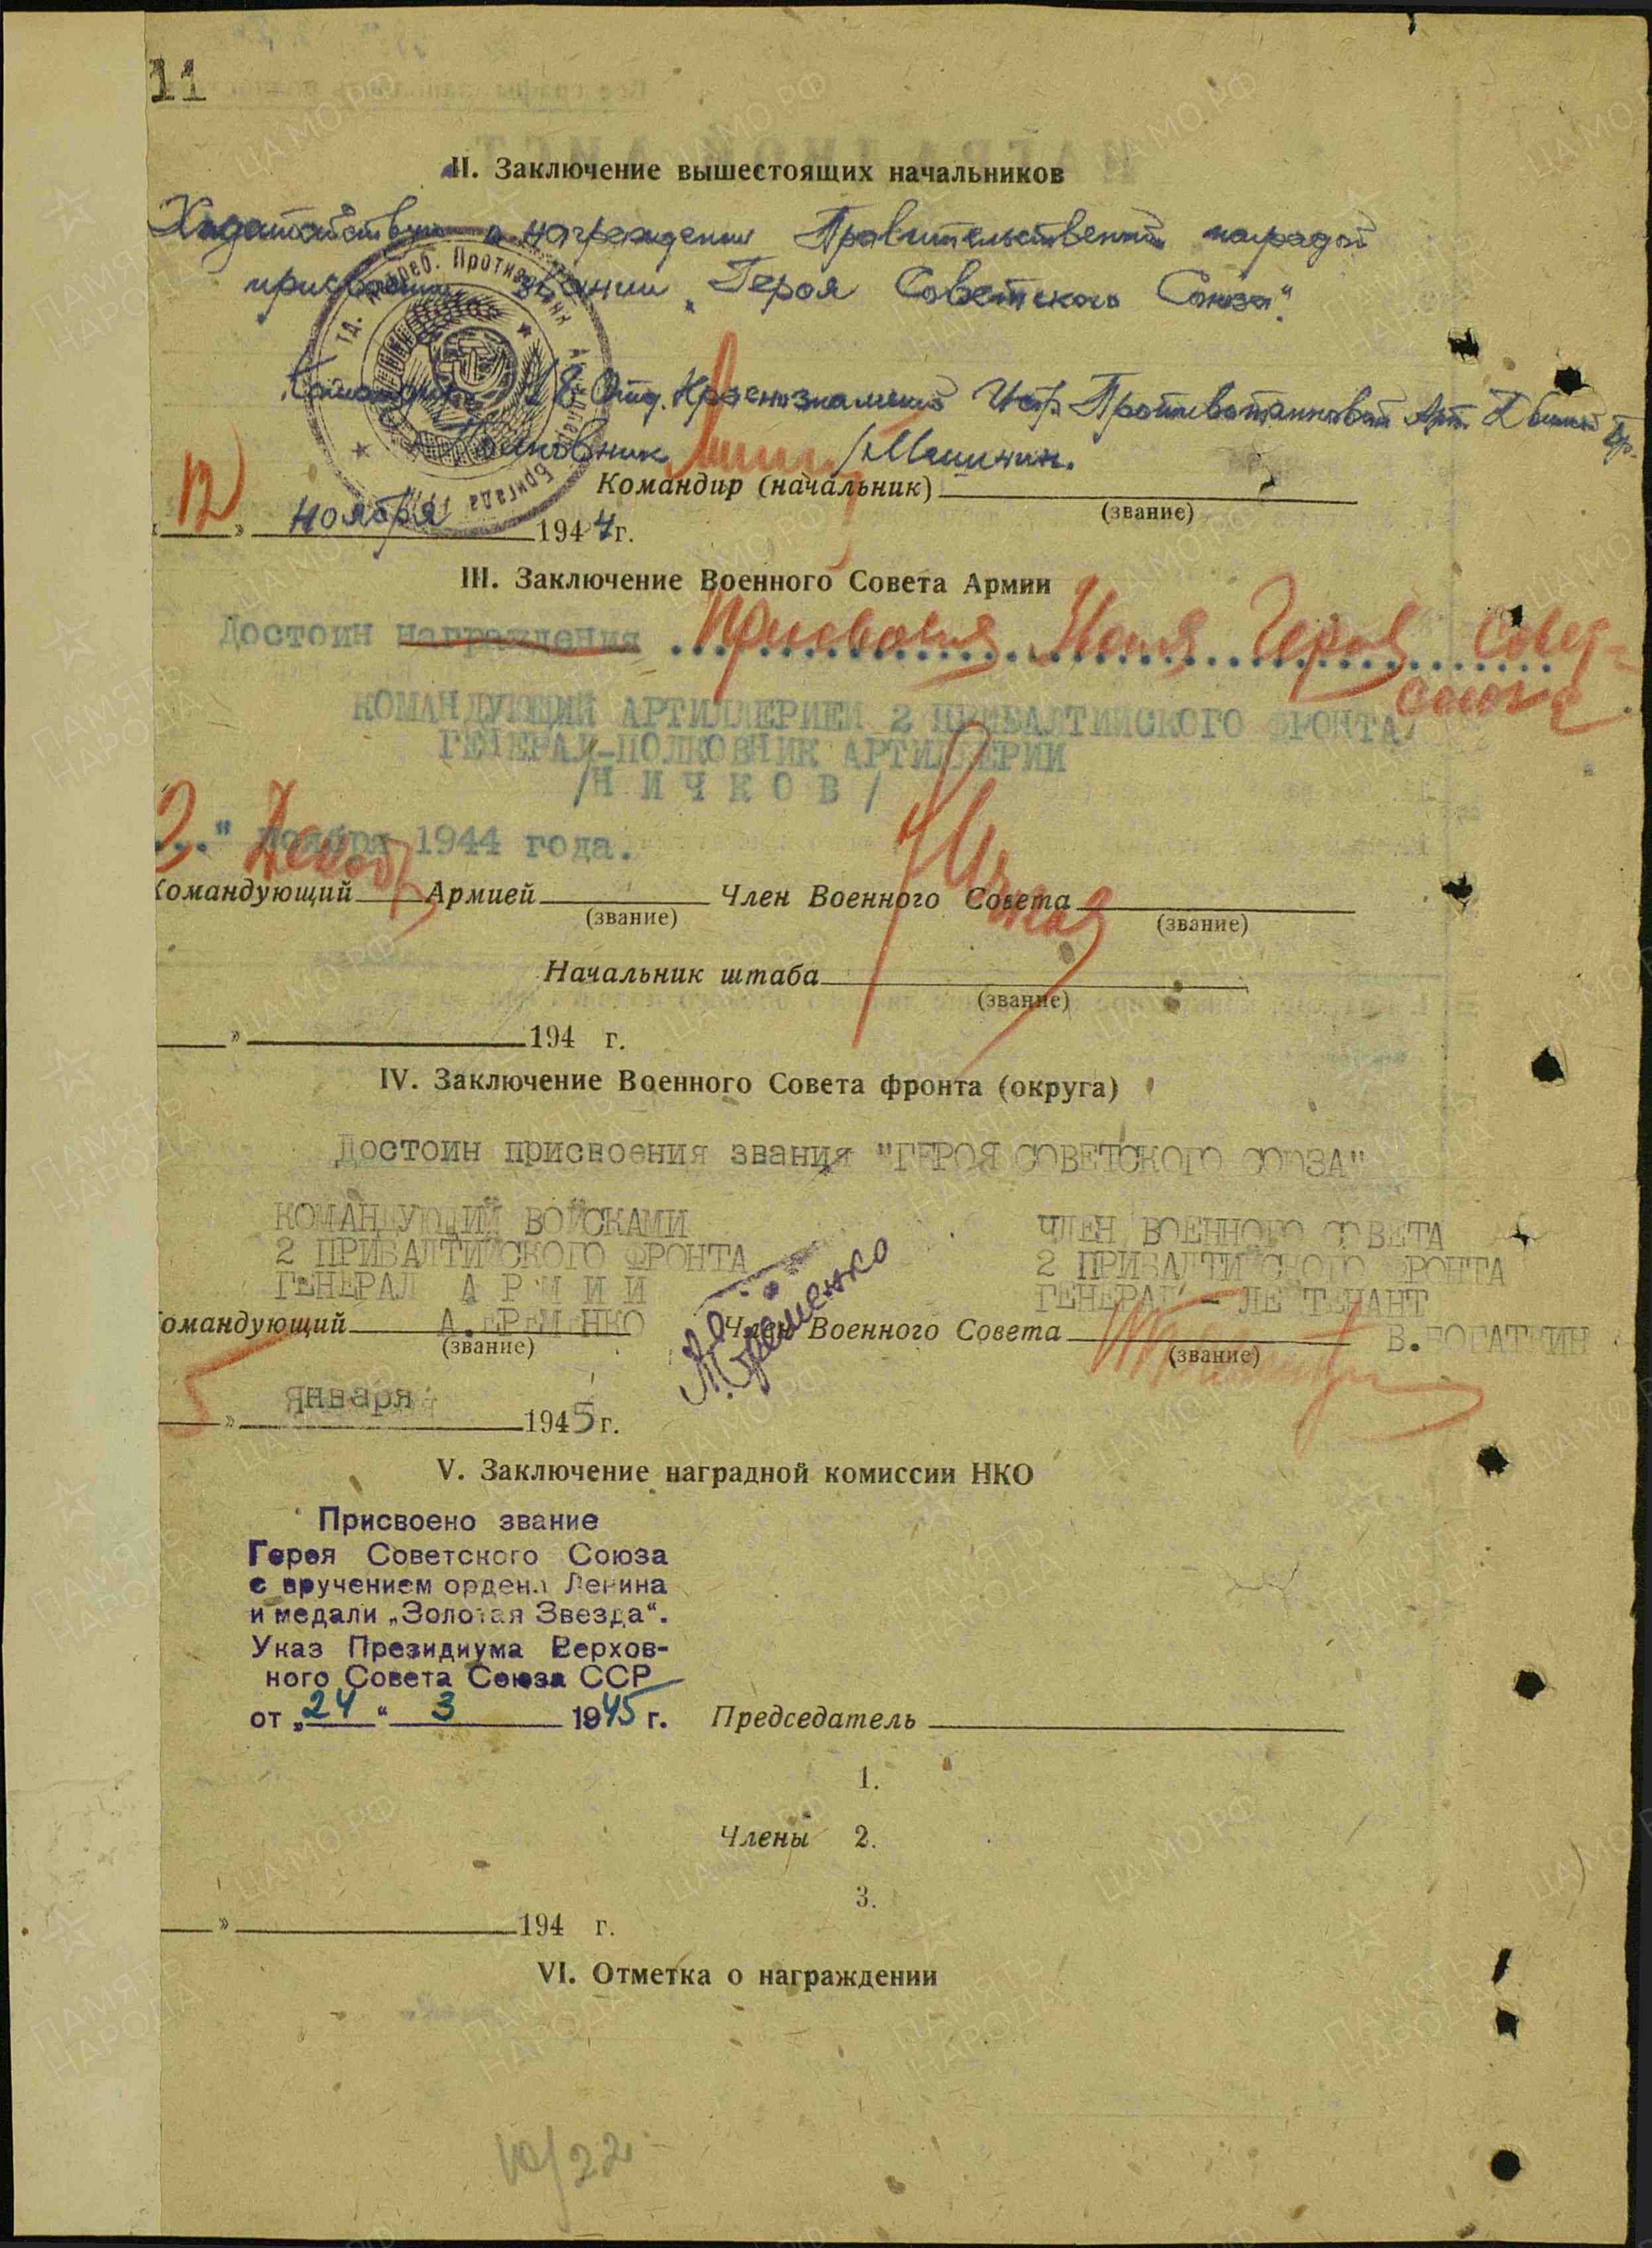 11
II. Заключение вышестоящих начальников
Ходатайствую о награждении Правительственной наградой
присвоении звании „Героя Советского Союза“.
Отд. Краснознаменной Истр. Противотанковой Арт.
Полковник
Командир (начальник)
(звание)
«12» ноября 1944 г.
III. Заключение Военного Совета Армии
Достоин награждения присвоения Героя Совет-
союза
КОМАНДУЮЩИЙ АРТИЛЛЕРИЕЙ 2 ПРИБАЛТИЙСКОГО ФРОНТА
ГЕНЕРАЛ-ПОЛКОВНИК АРТИЛЛЕРИИ
/НИЧКОВ/
2 " ноября Декабр 1944 года.
Командующий Армией Член Военного Совета
(звание) (звание)
Начальник штаба
(звание)
» 194 г.
IV. Заключение Военного Совета фронта (округа)
Достоин присвоения звания "ГЕРОЯ СОВЕТСКОГО СОЮЗА"
КОМАНДУЮЩИЙ ВОЙСКАМИ ЧЛЕН ВОЕННОГО СОВЕТА
2 ПРИБАЛТИЙСКОГО ФРОНТА 2 ПРИБАЛТИЙСКОГО ФРОНТА
ГЕНЕРАЛ АРМИИ ГЕНЕРАЛ-ЛЕЙТЕНАНТ
Командующий А. ЕРЕМЕНКО А. Еременко Член Военного Совета В. БОГАТКИН
(звание) (звание)
5 » января 1945 г.
V. Заключение наградной комиссии НКО
Присвоено звание
Героя Советского Союза
с вручением ордена Ленина
и медали „Золотая Звезда“.
Указ Президиума Верхов-
ного Совета Союза ССР
от „24“ 3 1945 г. Председатель
1.
Члены 2.
3.
» 194 г.
VI. Отметка о награждении
10/22